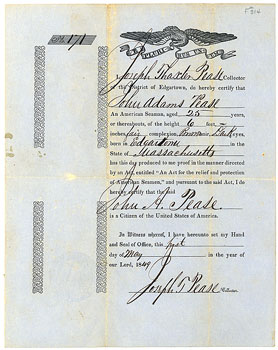 F 814
No. 171
E PLURIBUS UNUM
I, Joseph Thaxter Pease Collector
of the District of Edgartown, do hereby certify that
John Adams Pease
An American Seaman, aged 25 years,
or thereabouts, of the height 6 feet,
inches, fair complexion, Brown hair, Dark eyes,
born in Edgartown in the
State of Massachusetts
has this day produced to me proof in the manner directed
by an Act, entitled "An Act for the relief and protection
of American Seamen," and pursuant to the said Act, I do
hereby certify that the said
John A. Pease
is a Citizen of the United States of America.
In Witness whereof, I have hereunto set my Hand
and Seal of Office, this first
day of May in the year of
our Lord, 1849
Joseph T Pease Collector.